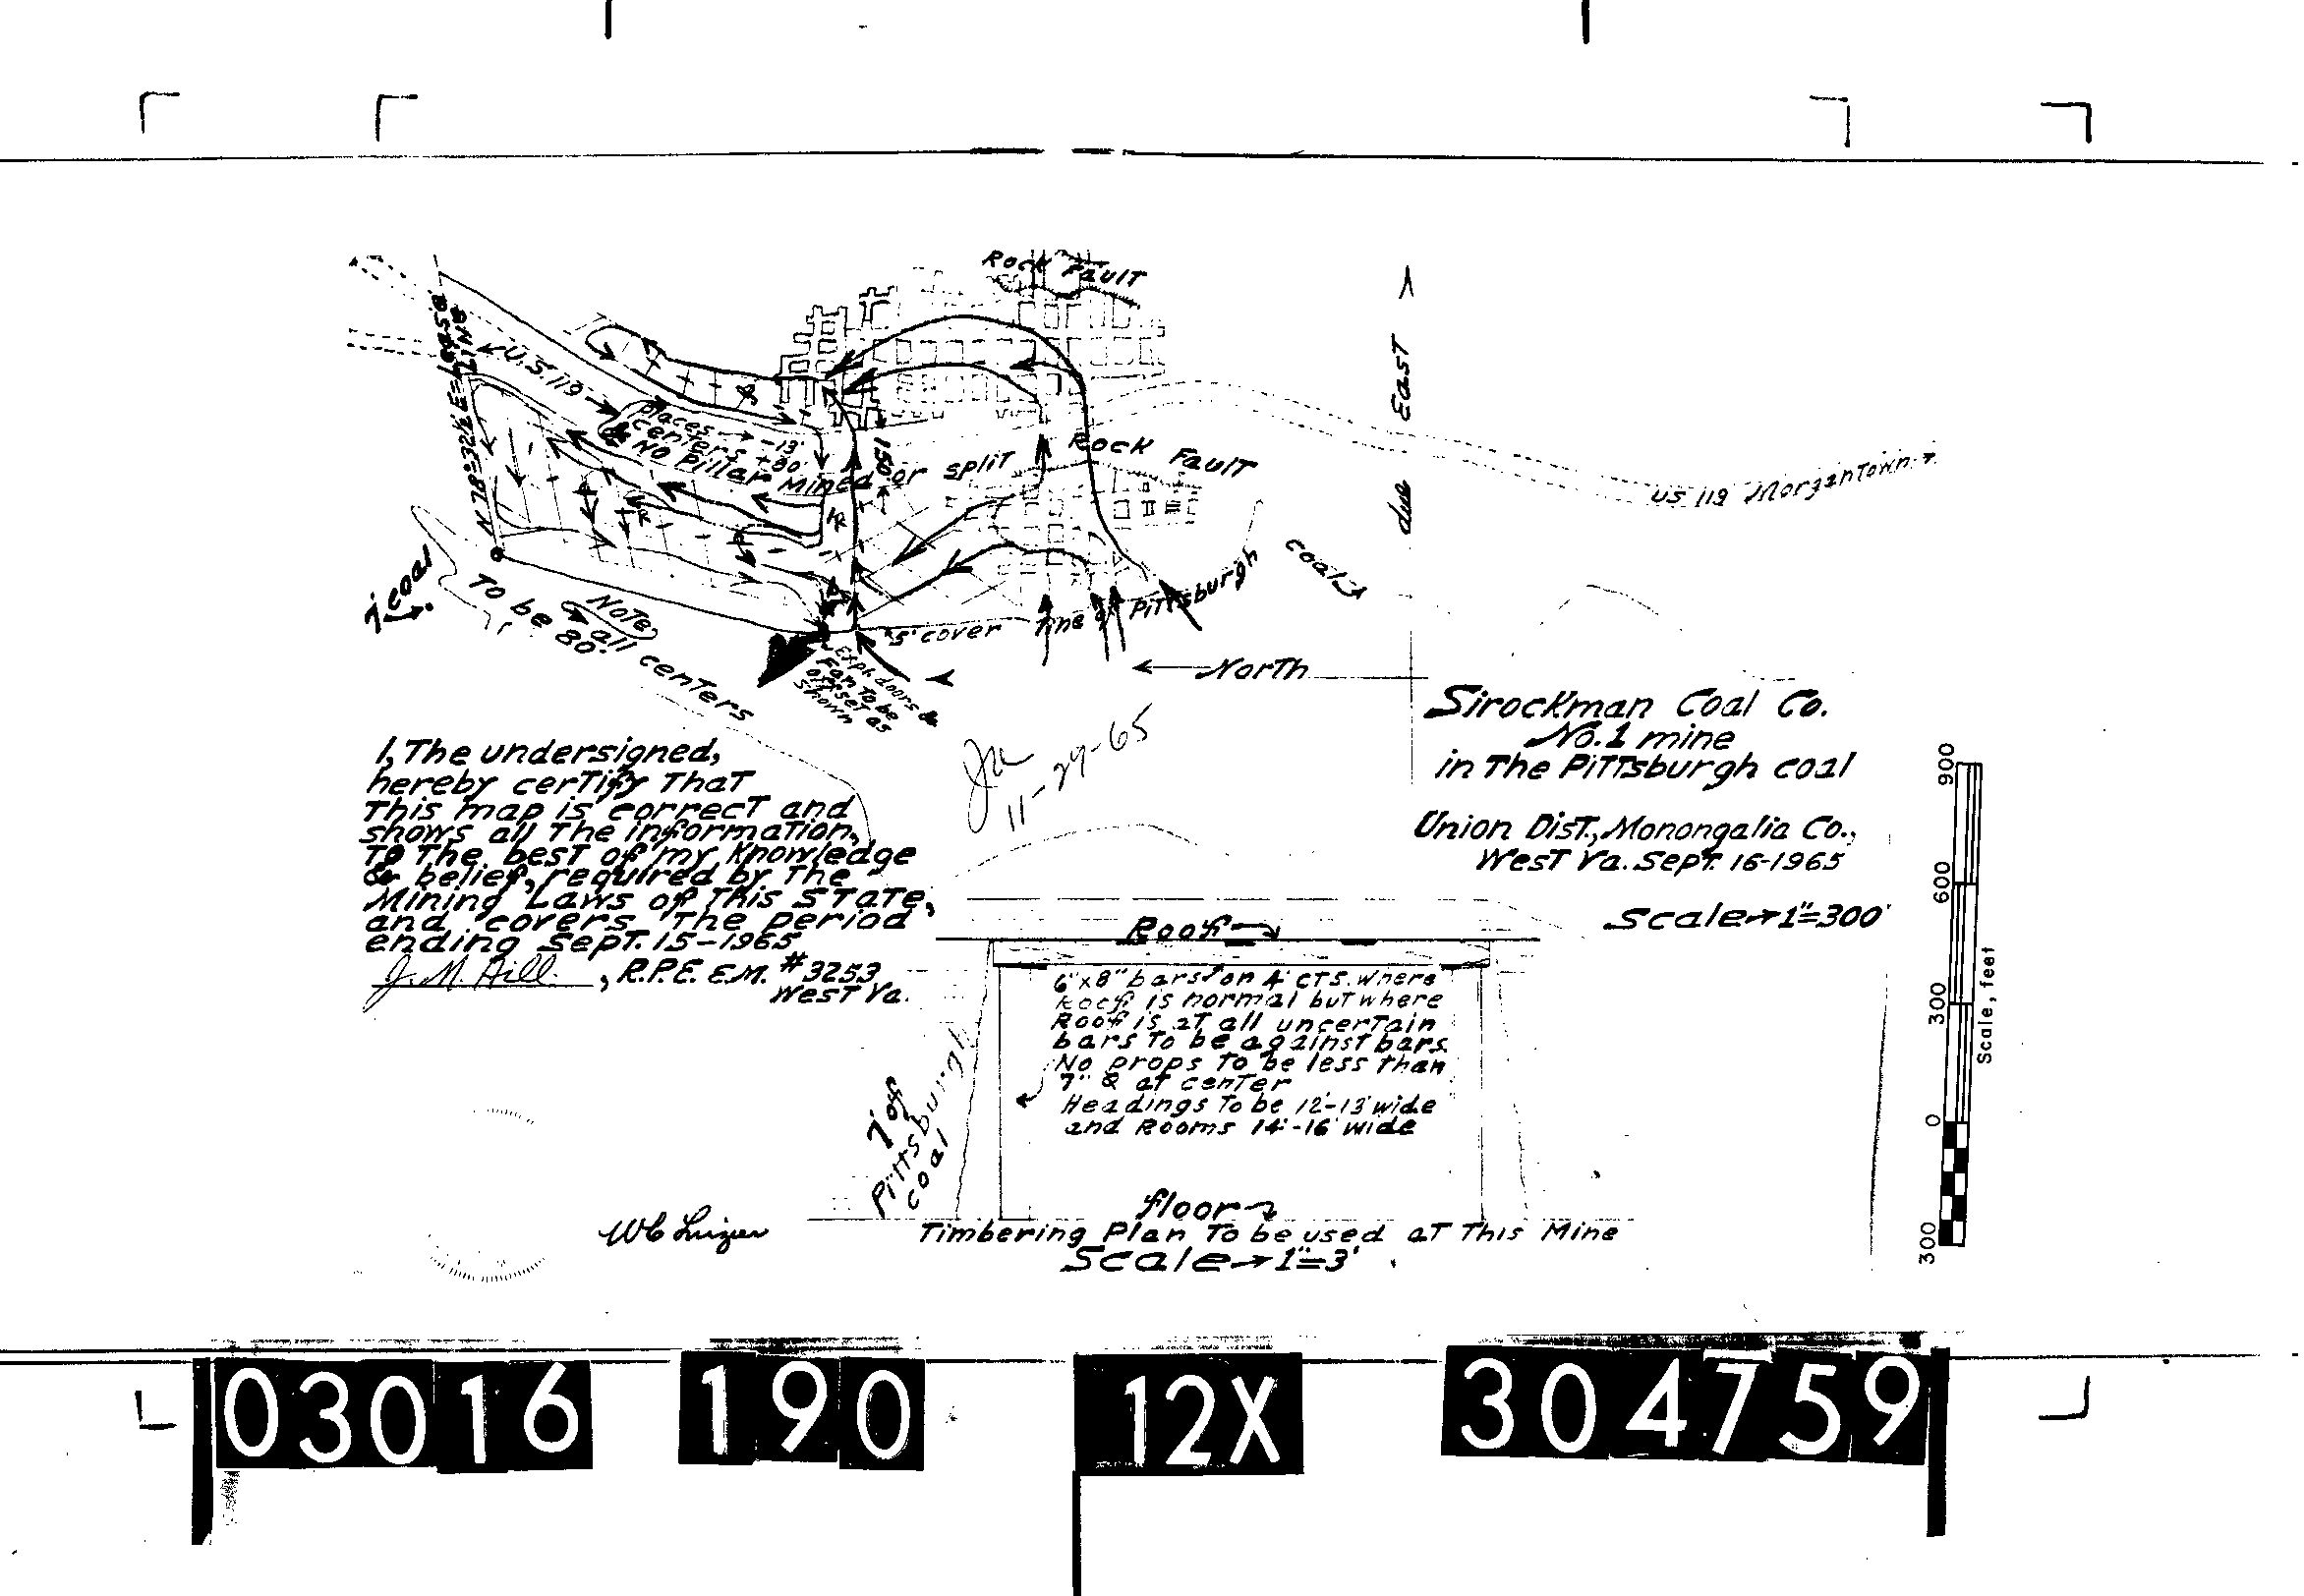 Rock Fault
N 78°-32½'E=Lease
Line
U.S. 119
places → -13'
centers +80'
No Pillar Mined or split
150'
Rock Fault
due East
US 119 Morgantown
7' coal
To be 80'.
Note:
all centers
5' cover line of Pittsburgh coal
Expl. doors &
Fan To be
offset as
shown
North
Sirockman Coal Co.
No.1 mine
in The Pittsburgh coal
Union Dist., Monongalia Co.,
West Va. Sept. 16-1965
Scale→1"=300'
11-29-65
I, The undersigned,
hereby certify That
This map is correct and
shows all The information,
To The best of my Knowledge
& belief, required by The
Mining Laws of This State,
and covers The period
ending Sept. 15-1965
J. M. Hill , R.P.E. E.M. #3253
West Va.
Roof
6"x8" bars on 4' cts. where
Roof is normal but where
Roof is at all uncertain
bars To be against bars.
No props To be less Than
7" @ at center
Headings To be 12'-13' wide
and Rooms 14'-16' wide
7' of
Pittsburgh
coal
floor
Timbering Plan To be used at This Mine
Scale→1"=3'
900
600
300
0
300
Scale, feet
03016 190 12X 304759